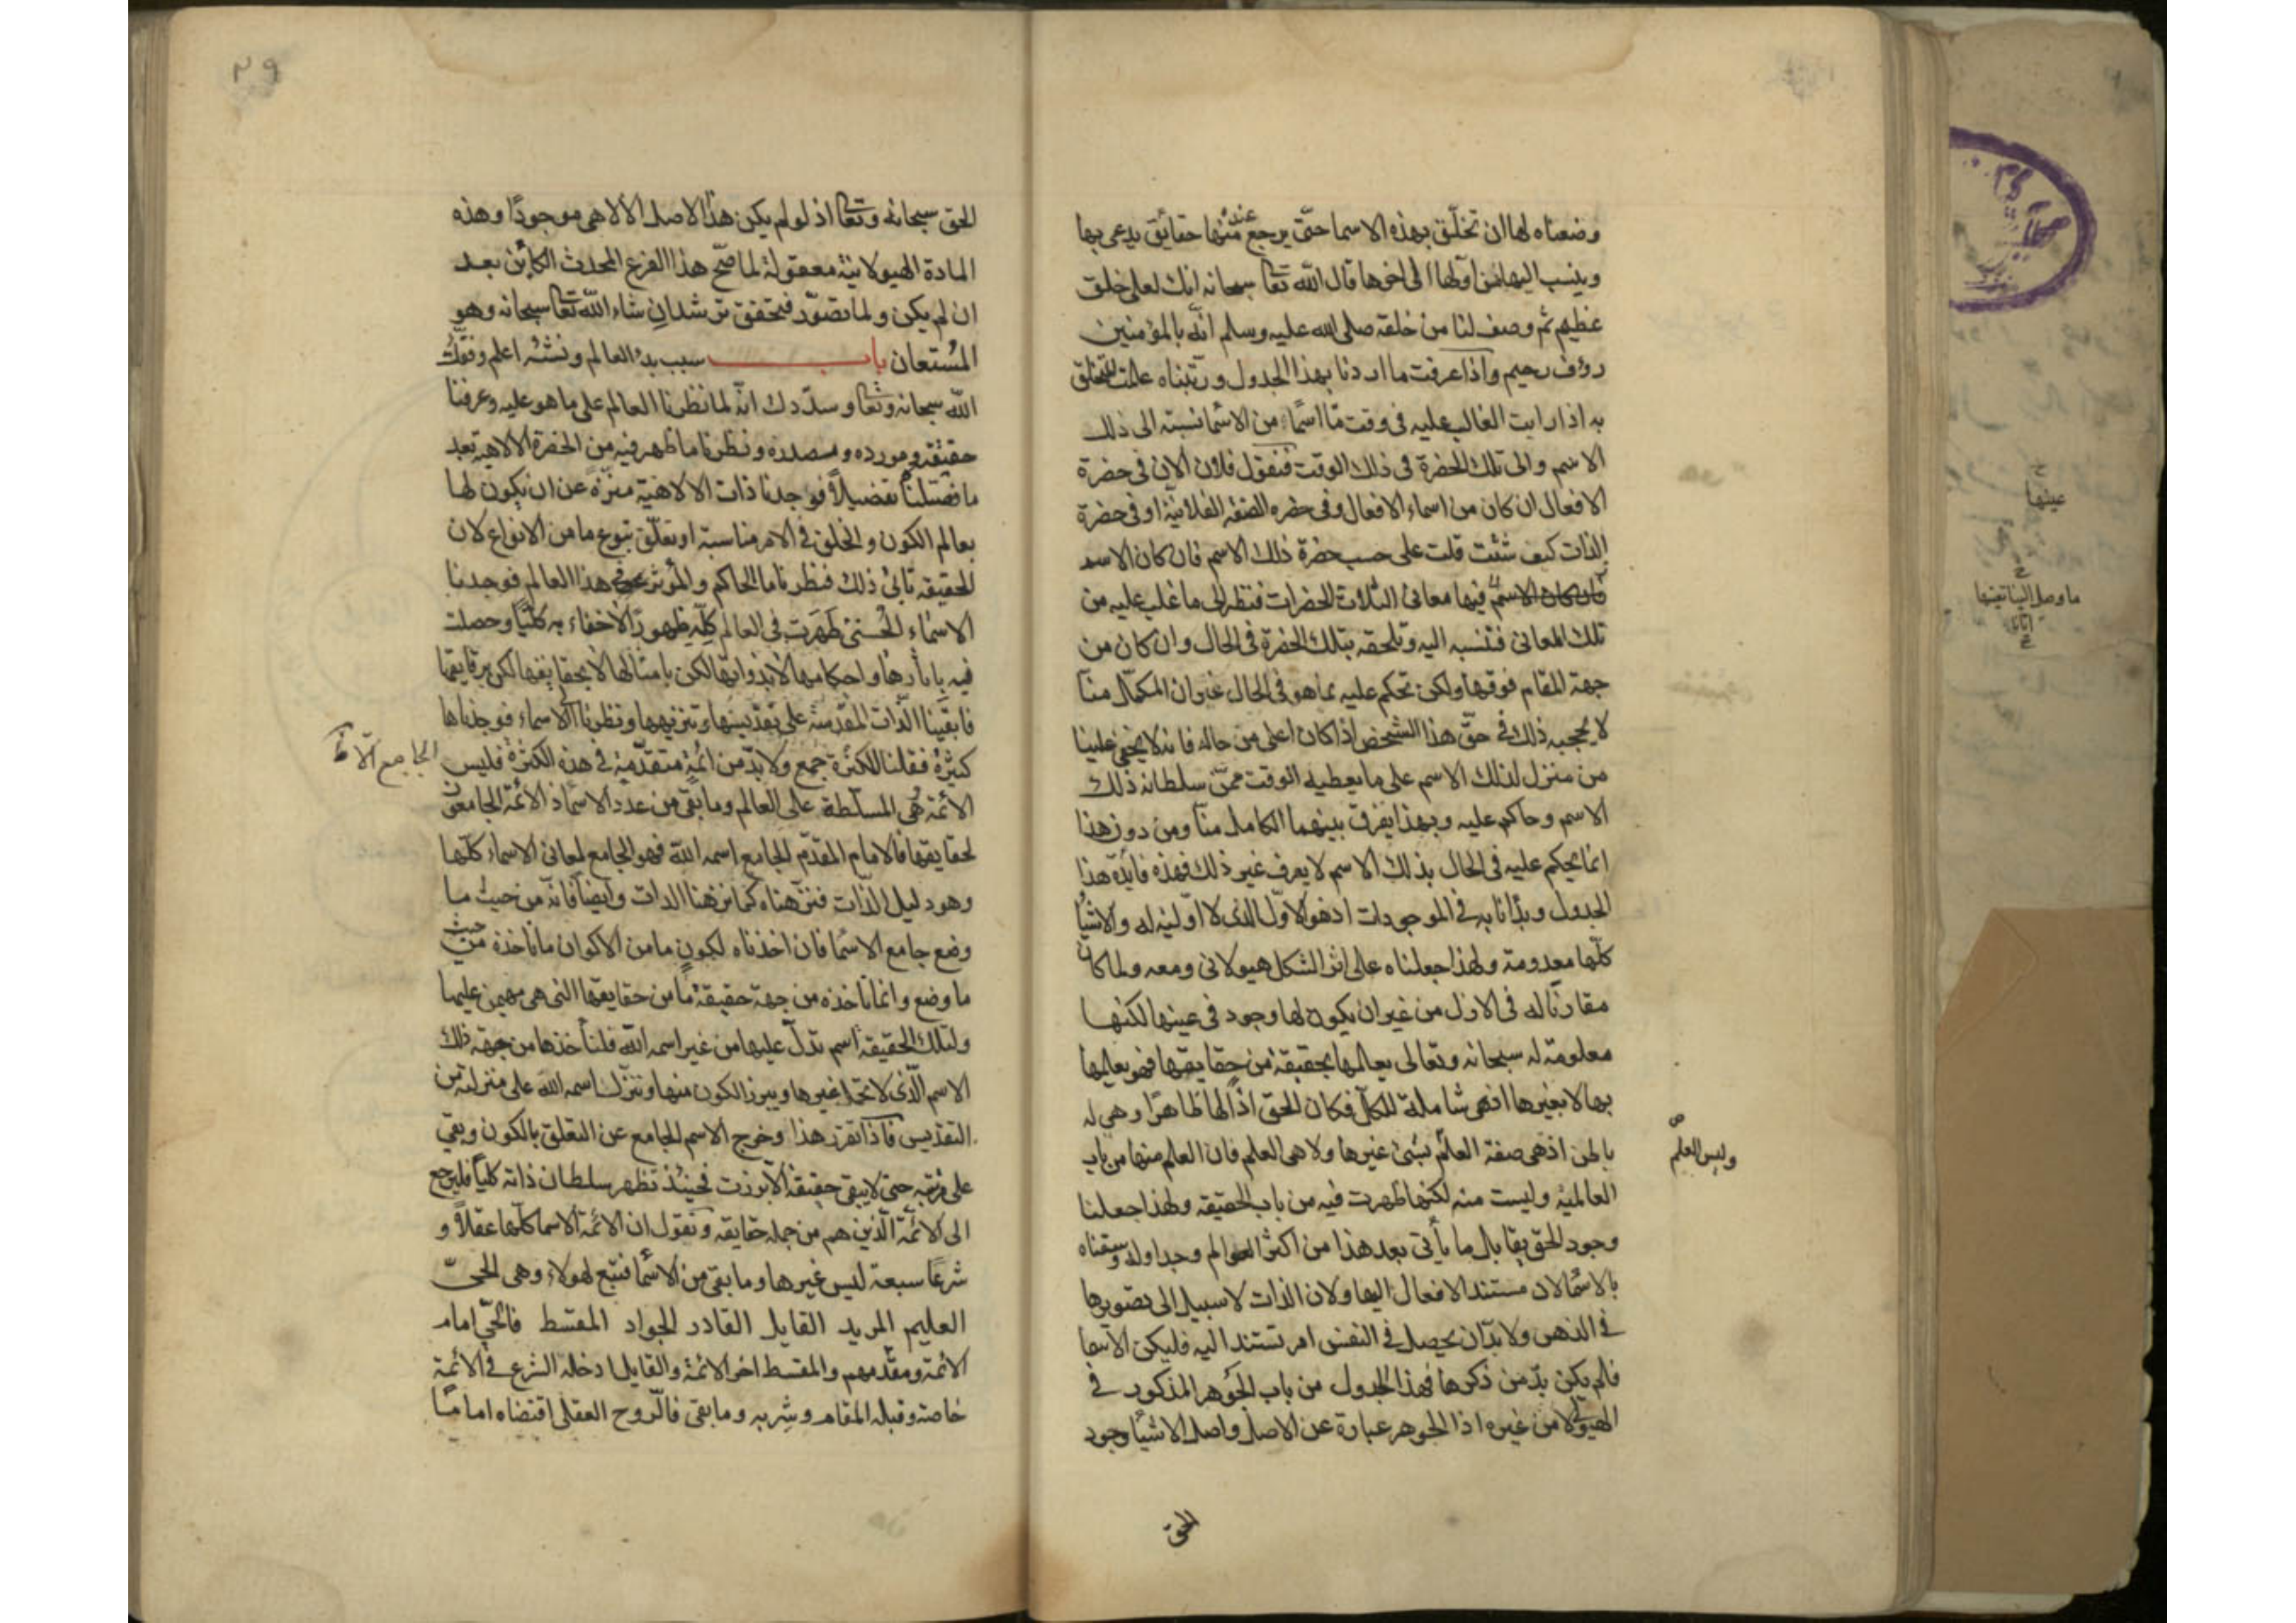 وضعناه لها ان تخلّق بهذه الاسما حتّى يرجع عنده منها حقائق يدعى بها
وينسب اليها من اوّلها الى اخرها قال الله تعا سبحانه انك لعلى خلق
عظيم ثم وصف لنا من خلقه صلى الله عليه وسلم انّه بالمؤمنين
رؤف رحيم واذا عرفت ما اردنا بهذا الجدول ورتّبناه علمت التخلق
به اذا رايت الغالب عليه فى وقت مّا اسمًا من الاسما نسبته الى ذلك
الاسم والى تلك الحضرة فى ذلك الوقت فنقول فلان الان فى حضرة
الافعال ان كان من اسماء الافعال وفى حضره الصفة الفلانيّة او فى حضرة
الذات كيف شئت قلت على حسب حضرة ذلك الاسم فان كان الاسد
فان كان الاسم فيها معانى الثلاث الحضرات فننظر الى ما غلب عليه من
تلك المعانى فننسبه اليه ونلحقه بتلك الحضرة فى الحال وان كان من
جهة المقام فوقها ولكن نحكم عليه بما هو فى الحال غير ان المكمّل منّا
لا يحجبه ذلك فى حقّ هذا الشخص اذا كان اعلى من حاله فانه لا يخفى علينا
من منزل لذلك الاسم على ما يعطيه الوقت ممّن سلطانه ذلك
الاسم وحاكم عليه وبهذا يفرق بينهما الكامل منّا ومن دون هذا
انما يحكم عليه فى الحال بذلك الاسم لا يعرف غير ذلك فهذه فايدة هذا
الجدول وبدانا به فى الموجودات اذ هو الاوّل الذى لا اوّلية له والاشيا
كلّها معدومة ولهذا جعلناه على اثر الشكل هيولانى ومعه ولما كان
مقارنًا له فى الازل من غير ان يكون لها وجود فى عينها لكنها
معلومة له سبحانه وتعالى يعالمها بحقيقة من حقايقها فهو يعالمها
بها لا بغيرها اذ هى شاملة للكل فكان الحق اذا لها ظاهرًا وهى له
بالحق اذ هى صفة العلم بشئ غيرها ولا هى العلم فان العلم منها من باب
وليس العلم صح
العالمية وليست منه لكنها ظهرت فيه من باب الحقيقة ولهذا جعلنا
وجود الحق يقابل ما يأتى بعد هذا من اكثر العوالم وجداوله وسقناه
بالاسما لان مستند الافعال اليها ولان الذات لا سبيل الى تصويرها
فى الذهن ولا بدّ ان يحصل فى النفس امر تستند اليه فليكن الاسما
فلم يكن بدّ من ذكرها فهذا الجدول من باب الجوهر المذكور فى
الهيولى لا من غيره اذ الجوهر عبارة عن الاصل واصل الاشيا وجود
الحق
٢٩
الحق سبحانه وتعا اذ لو لم يكن هذا الاصل الالاهى موجودًا وهذه
المادة الهيولانية معقولة لما صحّ هذا الفرع المحدث الكائن بعد
ان لم يكن ولما تصوّر فتحقق ترشد ان شاء الله تعا سبحانه وهو
المستعان باب سبب بدء العالم ونشئه اعلم وفقك
الله سبحانه وتعا وسدّدك انّه لما نظرنا العالم على ما هو عليه وعرفنا
حقيقته ومورده ومصدره ونظرنا ما ظهر فيه من الحضرة الالاهية بعد
ما فصّلنا تفضيلاً فوجدنا ذات الالاهية منزّه عن ان يكون لها
بعالم الكون والخلق فى الامر مناسبة او تعلّق بنوع ما من الانواع لان
الحقيقة تابى ذلك فنظرنا ما الحاكم والمؤثر فى هذا العالم فوجدنا
الاسماء الحسنى ظهرت فى العالم كله ظهورًا لا خفاء به كليًّا وحصلت
فيه باثارها واحكامها لا بذواتها لكن بامثالها لا بحقايقها لكن برقايقها
فابقينا الذات المقدّسة على تقديسها وتنزيهها ونظرنا الاسماء فوجدناها
كثيرة فقلنا الكثرة جمع ولا بدّ من ائمة متقدّمة فى هذه الكثرة فليس
الأئمة هى المسلّطة على العالم وما بقى من عدد الاسما اذ الائمة الجامعون
لحقايقها فالامام المقدّم الجامع اسمه الله فهو الجامع لمعانى الاسماء كلّها
وهو دليل الذات فنزهناه كما نزهنا الذات وايضا فانه من حيث ما
وضع جامع الاسما فان اخذناه لكون ما من الاكوان ما ناخذه من حيث
ما وضع وانما ناخذه من جهة حقيقة ما من حقايقها التى هى مهيمن عليها
ولتلك الحقيقة اسم تدلّ عليها من غير اسمه الله فلنأخذها من جهة ذلك
الاسم الّذى لا يحتمل غيرها ويبرز الكون منها ونترك اسمه الله على منزلته من
التقديس فاذا تقرر هذا وخرج الاسم الجامع عن التعلق بالكون وبقى
على مرتبته حتى لا يبقى حقيقة الا برزت فحينئذ تظهر سلطان ذاته كليا فليرجع
الى الائمّة الّذين هم من جملة حقايقه ونقول ان الائمّة الاسما كلّها عقلاً و
شرعًا سبعة ليس غيرها وما بقى من الاسما فتبع لهولاء وهى الحىّ
العليم المريد القايل القادر الجواد المقسط فالحىّ امام
الائمة ومقدّمهم والمقسط اخر الائمة والقايل ادخله الشرع فى الائمة
خاصة وقبله المقام وشربه وما بقى فالرّوح العقلى اقتضاه اماما
عينها